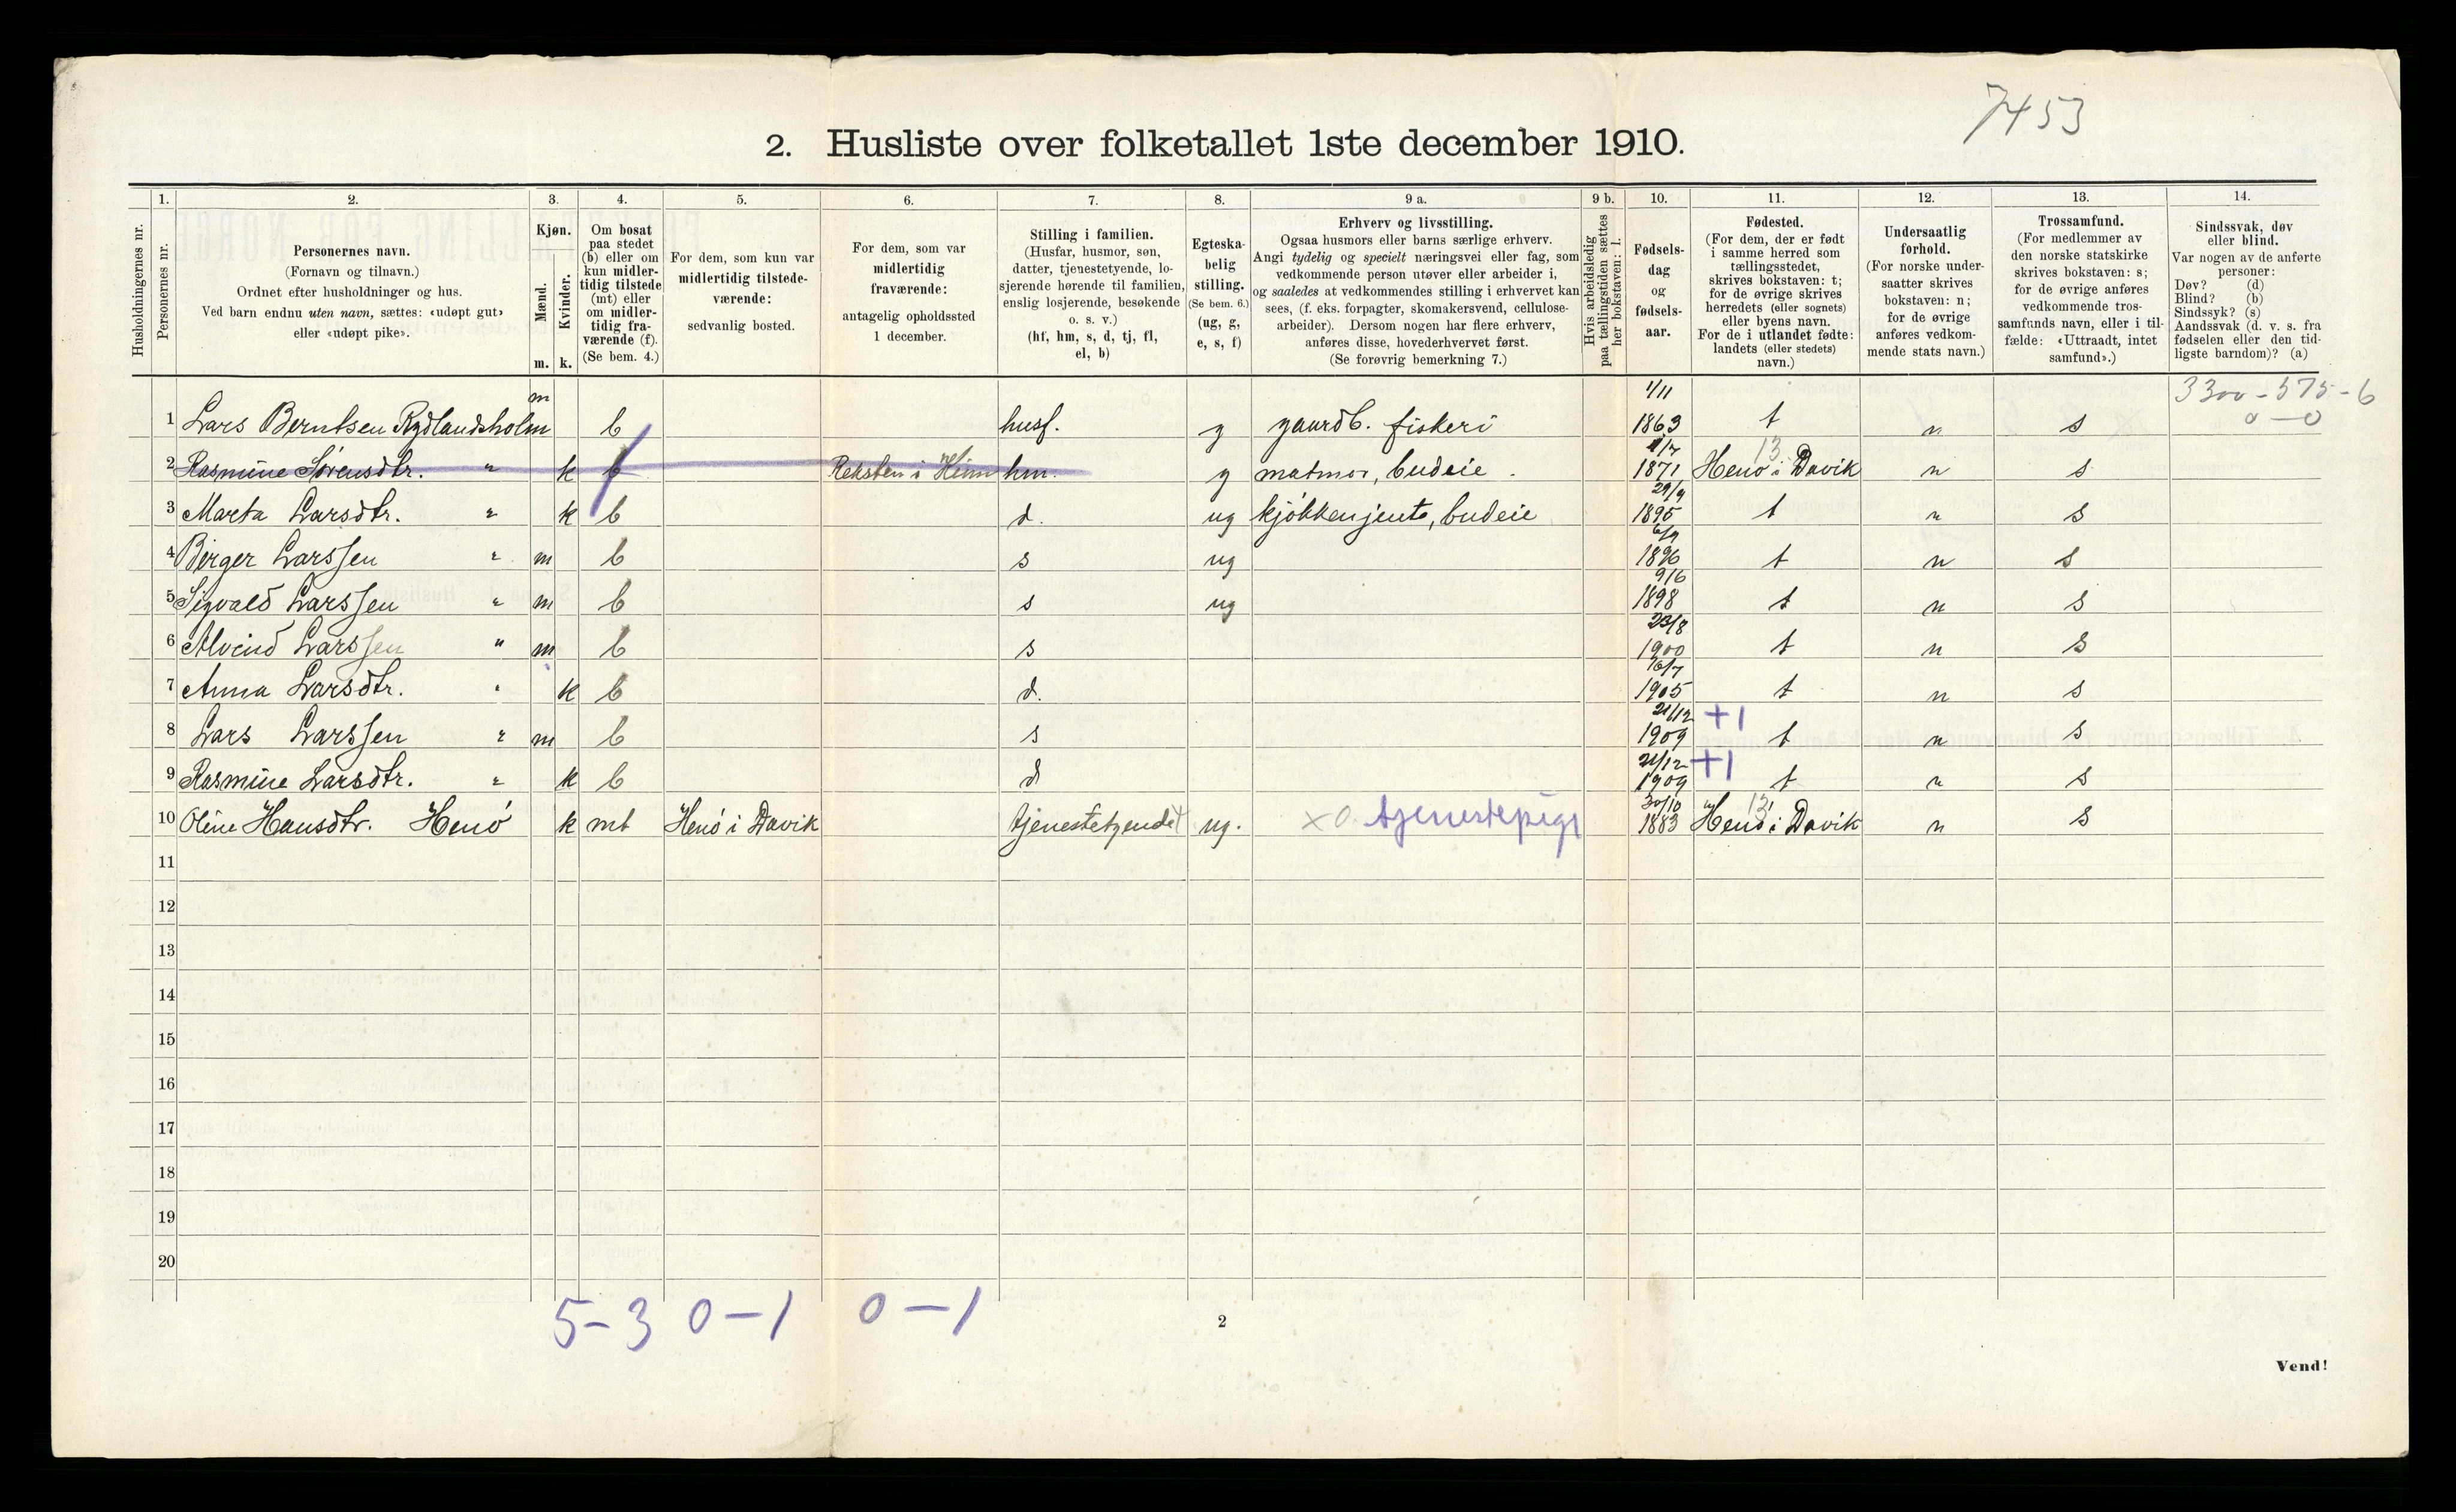 7453
2. Husliste over folketallet 1ste december 1910.
1. 2. 3. 4. 5. 6. 7. 8. 9 a. 9 b. 10. 11. 12. 13. 14.
Husholdningernes nr.
Personernes nr.
Personernes navn.
(Fornavn og tilnavn.)
Ordnet efter husholdninger og hus.
Ved barn endnu uten navn, sættes: «udøpt gut»
eller «udøpt pike».
Kjøn.
Mænd.
Kvinder.
m. k.
Om bosat
paa stedet
(b) eller om
kun midler-
tidig tilstede
(mt) eller
om midler-
tidig fra-
værende (f).
(Se bem. 4.)
For dem, som kun var
midlertidig tilstede-
værende:
sedvanlig bosted.
For dem, som var
midlertidig
fraværende:
antagelig opholdssted
1 december.
Stilling i familien.
(Husfar, husmor, søn,
datter, tjenestetyende, lo-
sjerende hørende til familien,
enslig losjerende, besøkende
o. s. v.)
(hf, hm, s, d, tj, fl,
el, b)
Egteska-
belig
stilling.
(Se bem. 6.)
(ug, g,
e, s, f)
Erhverv og livsstilling.
Ogsaa husmors eller barns særlige erhverv.
Angi tydelig og specielt næringsvei eller fag, som
vedkommende person utøver eller arbeider i,
og saaledes at vedkommendes stilling i erhvervet kan
sees, (f. eks. forpagter, skomakersvend, cellulose-
arbeider). Dersom nogen har flere erhverv,
anføres disse, hovederhvervet først.
(Se forøvrig bemerkning 7.)
Hvis arbeidsledig
paa tællingstiden sættes
her bokstaven: l.
Fødsels-
dag
og
fødsels-
aar.
Fødested.
(For dem, der er født
i samme herred som
tællingsstedet,
skrives bokstaven: t;
for de øvrige skrives
herredets (eller sognets)
eller byens navn.
For de i utlandet fødte:
landets (eller stedets)
navn.)
Undersaatlig
forhold.
(For norske under-
saatter skrives
bokstaven: n;
for de øvrige
anføres vedkom-
mende stats navn.)
Trossamfund.
(For medlemmer av
den norske statskirke
skrives bokstaven: s;
for de øvrige anføres
vedkommende tros-
samfunds navn, eller i til-
fælde: «Uttraadt, intet
samfund».)
Sindssvak, døv
eller blind.
Var nogen av de anførte
personer:
Døv? (d)
Blind? (b)
Sindssyk? (s)
Aandssvak (d. v. s. fra
fødselen eller den tid-
ligste barndom)? (a)
m 1/11 3300-575-6
1 Lars Berntsen Rydlandsholm b husf. g gaardb. fiskeri 1863 t n s 0-0
2 Rasmine Sørensdtr. " k b Reksten i Kinn hm. g matmor, budeie. 1/7 1871 13 Henø i Davik n s
3 Marta Larsdtr. " k b d. ug kjøkkenjente, budeie 29/9 1895 t n s
4 Birger Larssen " m b s ug 6/9 1896 t n s
5 Sigvald Larssen " m b s ug 9/6 1898 t n s
6 Alvind Larssen " m b s 23/8 1900 t n s
7 Anna Larsdtr. " k b d. 16/7 1905 t n s
8 Lars Larssen " m b s 21/12 1909 +1 t n s
9 Rasmine Larsdtr. " k b d 21/12 1909 +1 t n s
10 Oline Hansdtr. Henø k mt Henø i Davik tjenestetyende ug. x0. tjenestepige 30/10 1883 13 Henø i Davik n s
11
12
13
14
15
16
17
18
19
20
5-3 0-1 0-1
2
Vend!